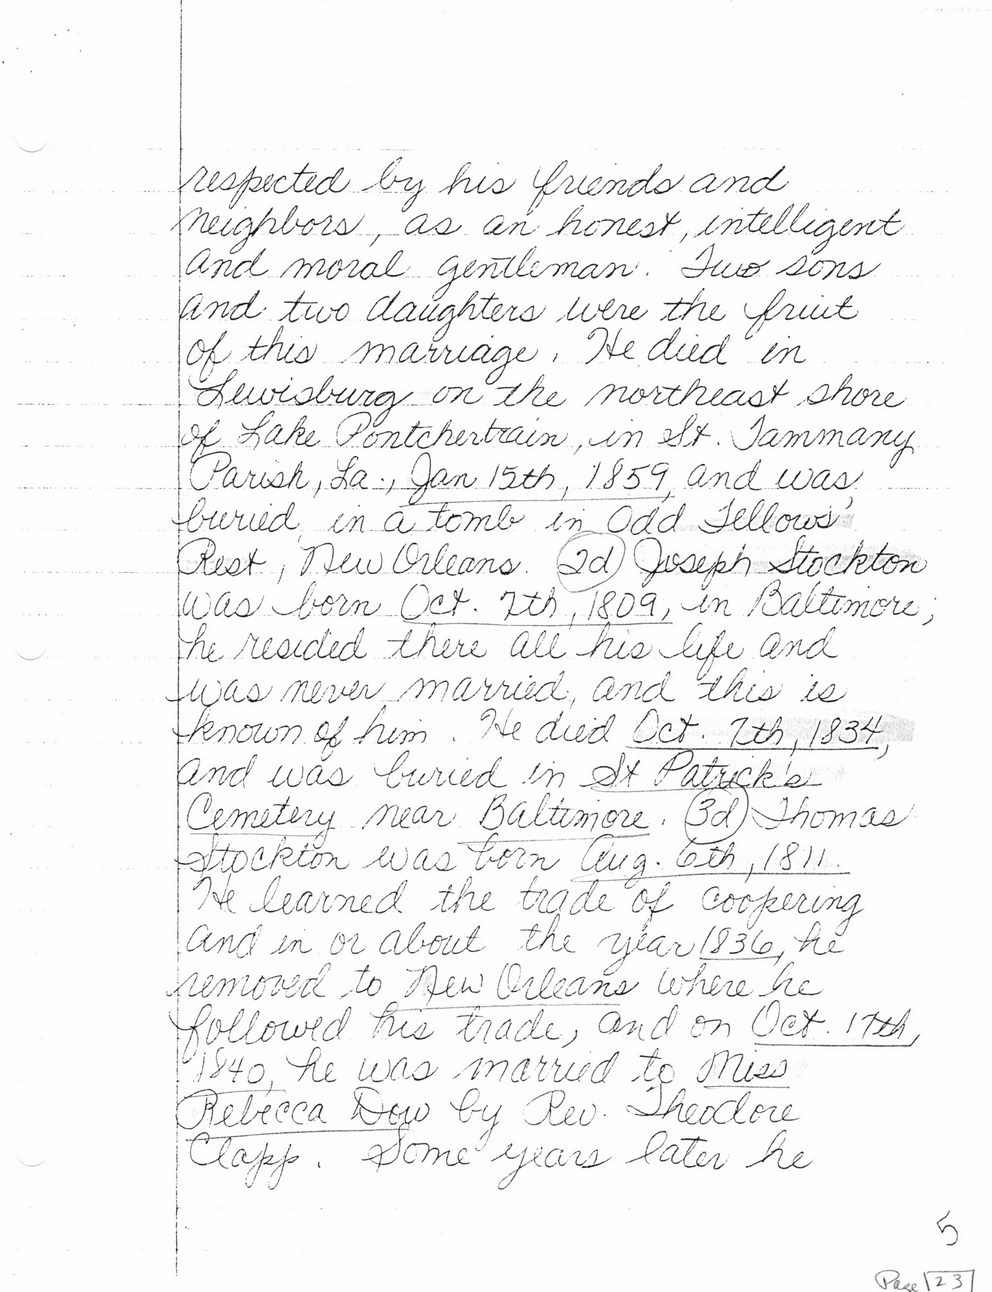 respected by his friends and
neighbors, as an honest, intelligent
and moral gentleman. Two sons
and two daughters were the fruit
of this marriage. He died in
Lewisburg on the northeast shore
of Lake Pontchertrain, in St. Tammany
Parish, La., Jan 15th, 1859, and was
buried in a tomb in Odd Fellows'
Rest, New Orleans. 2d Joseph Stockton
was born Oct. 7th, 1809, in Baltimore;
he resided there all his life and
was never married, and this is
known of him. He died Oct. 7th, 1834,
and was buried in St Patrick's
Cemetery near Baltimore. 3d Thomas
Stockton was born Aug. 6th, 1811.
He learned the trade of coopering
and in or about the year 1836, he
removed to New Orleans where he
followed his trade, and on Oct. 17th,
1840, he was married to Miss
Rebecca Dow by Rev. Theodore
Clapp. Some years later he
5
Page 23